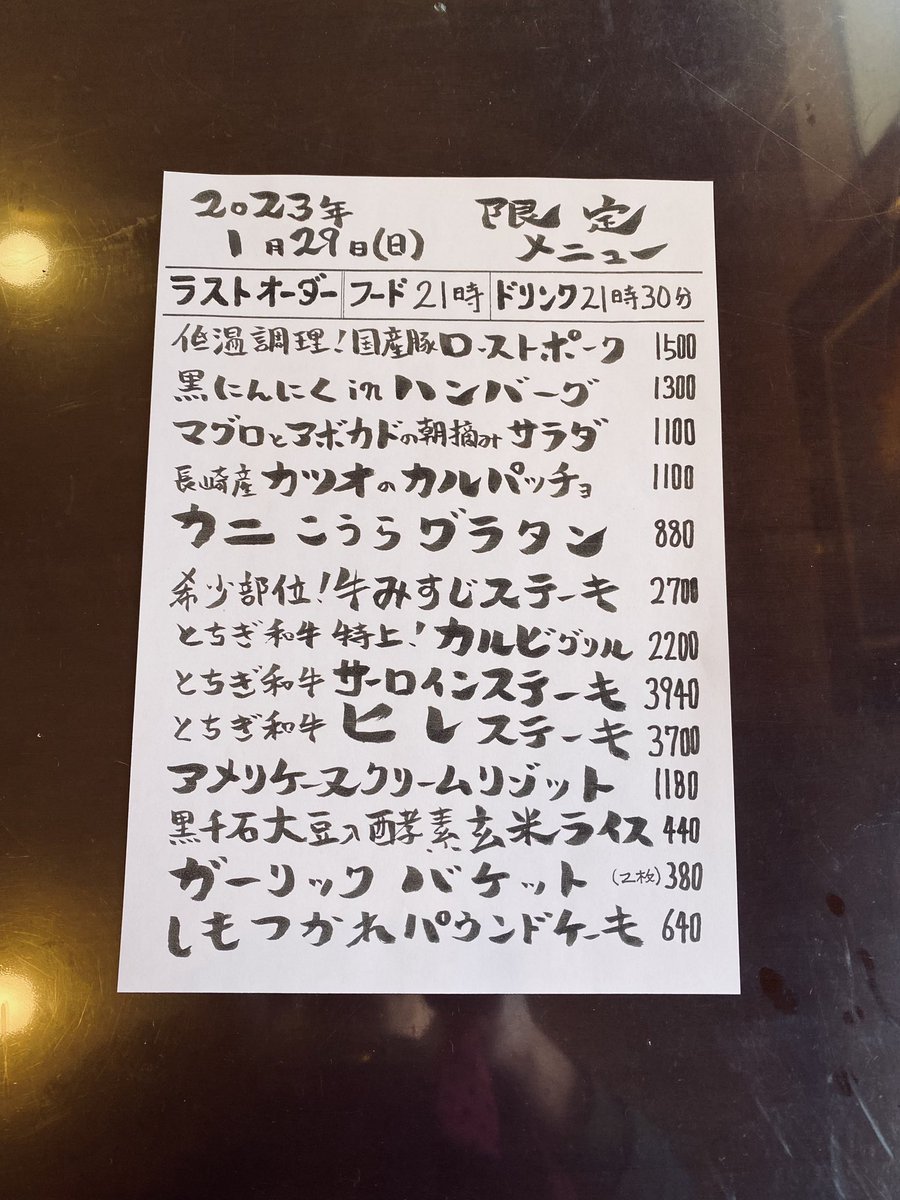 2023年 限定
1月29日(日) メニュー
ラストオーダー フード21時 ドリンク21時30分
低温調理！国産豚ローストポーク 1500
黒にんにくinハンバーグ 1300
マグロとアボカドの朝摘みサラダ 1100
長崎産カツオのカルパッチョ 1100
カニこうらグラタン 880
希少部位！牛みすじステーキ 2700
とちぎ和牛特上！カルビグリル 2200
とちぎ和牛サーロインステーキ 3940
とちぎ和牛ヒレステーキ 3700
アメリケーヌクリームリゾット 1180
黒千石大豆入酵素玄米ライス 440
ガーリックバケット (2枚) 380
しもつかれパウンドケーキ 640